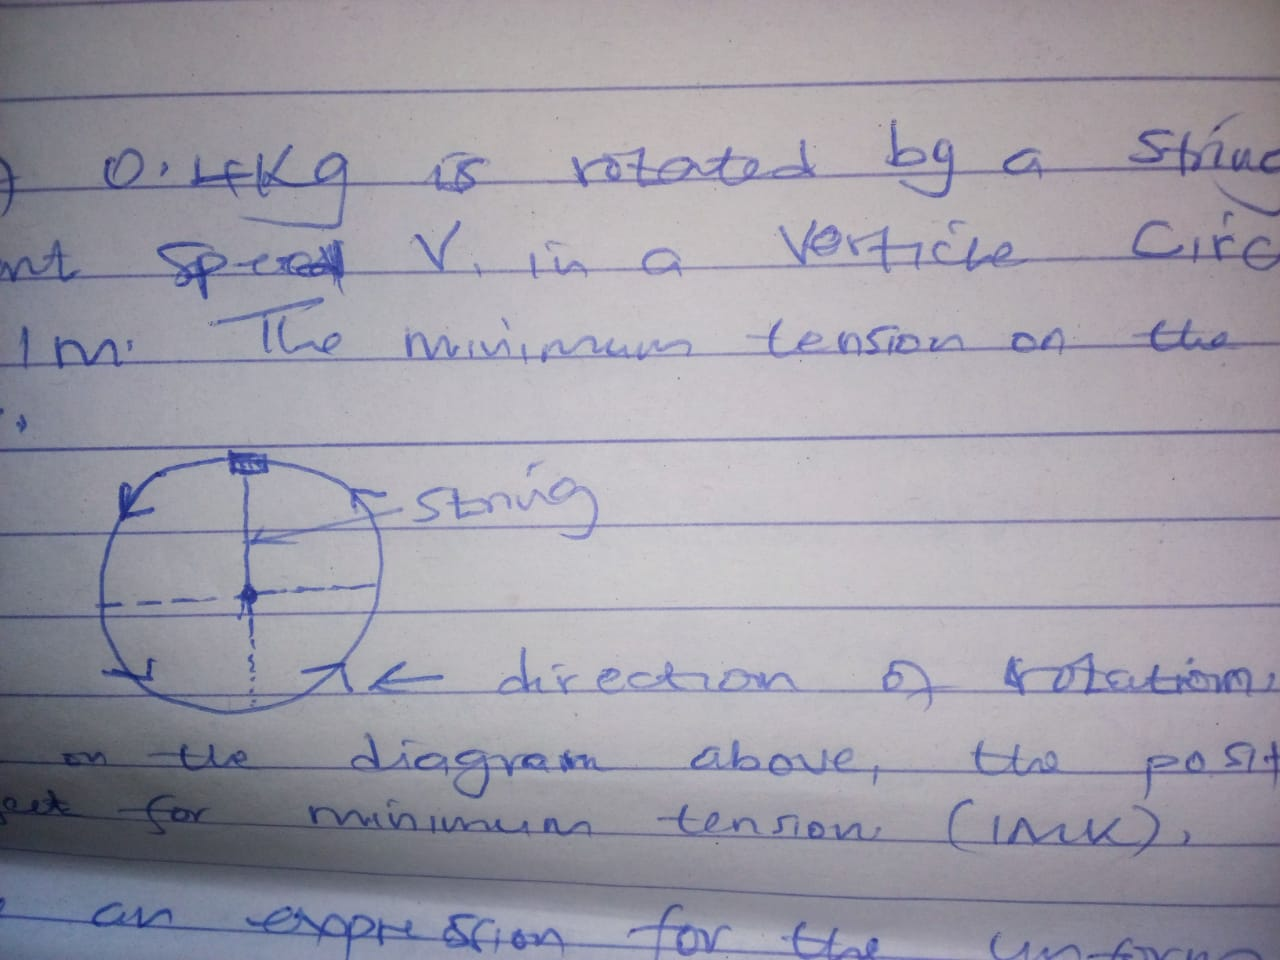 ) 0.4Kg is rotated by a string
nt speed V. in a Verticle Circ
1m. The minimum tension on the
string
direction of rotation.
on the diagram above, the posit
ect for minimum tension. (1MK).
an expression for the uniform